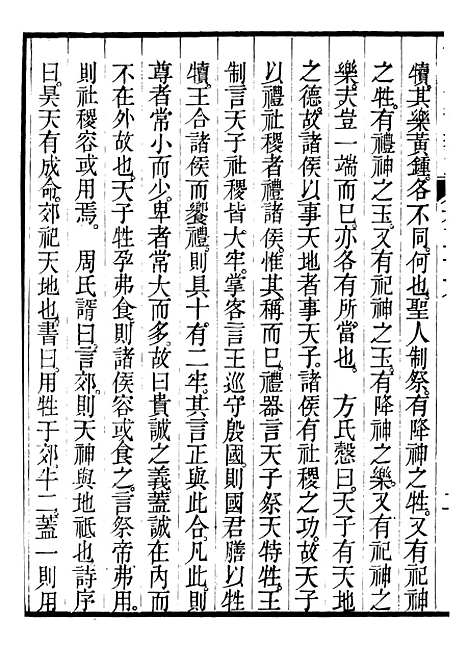 犢其樂黃鍾各不同何也聖人制祭有降神之牲又有祀神
之牲有禮神之玉又有祀神之玉有降神之樂又有祀神之
樂夫豈一端而已亦各有所當也　方氏慤曰天子有天地
之德故諸侯以事天地者事天子諸侯有社稷之功故天子
以禮社稷者禮諸侯惟其稱而已禮器言天子祭天特牲王
制言天子社稷皆大牢掌客言王巡守殷國則國君膳以牲
犢王合諸侯而饗禮則具十有二牢其言正與此合凡此則
尊者常小而少卑者常大而多故曰貴誠之義蓋誠在內而
不在外故也天子牲孕弗食則諸侯容或食之言祭帝弗用
則社稷容或用焉　周氏諝曰言郊則天神與地祇也詩序
曰昊天有成命郊祀天地也書曰用牲于郊牛二蓋一則用